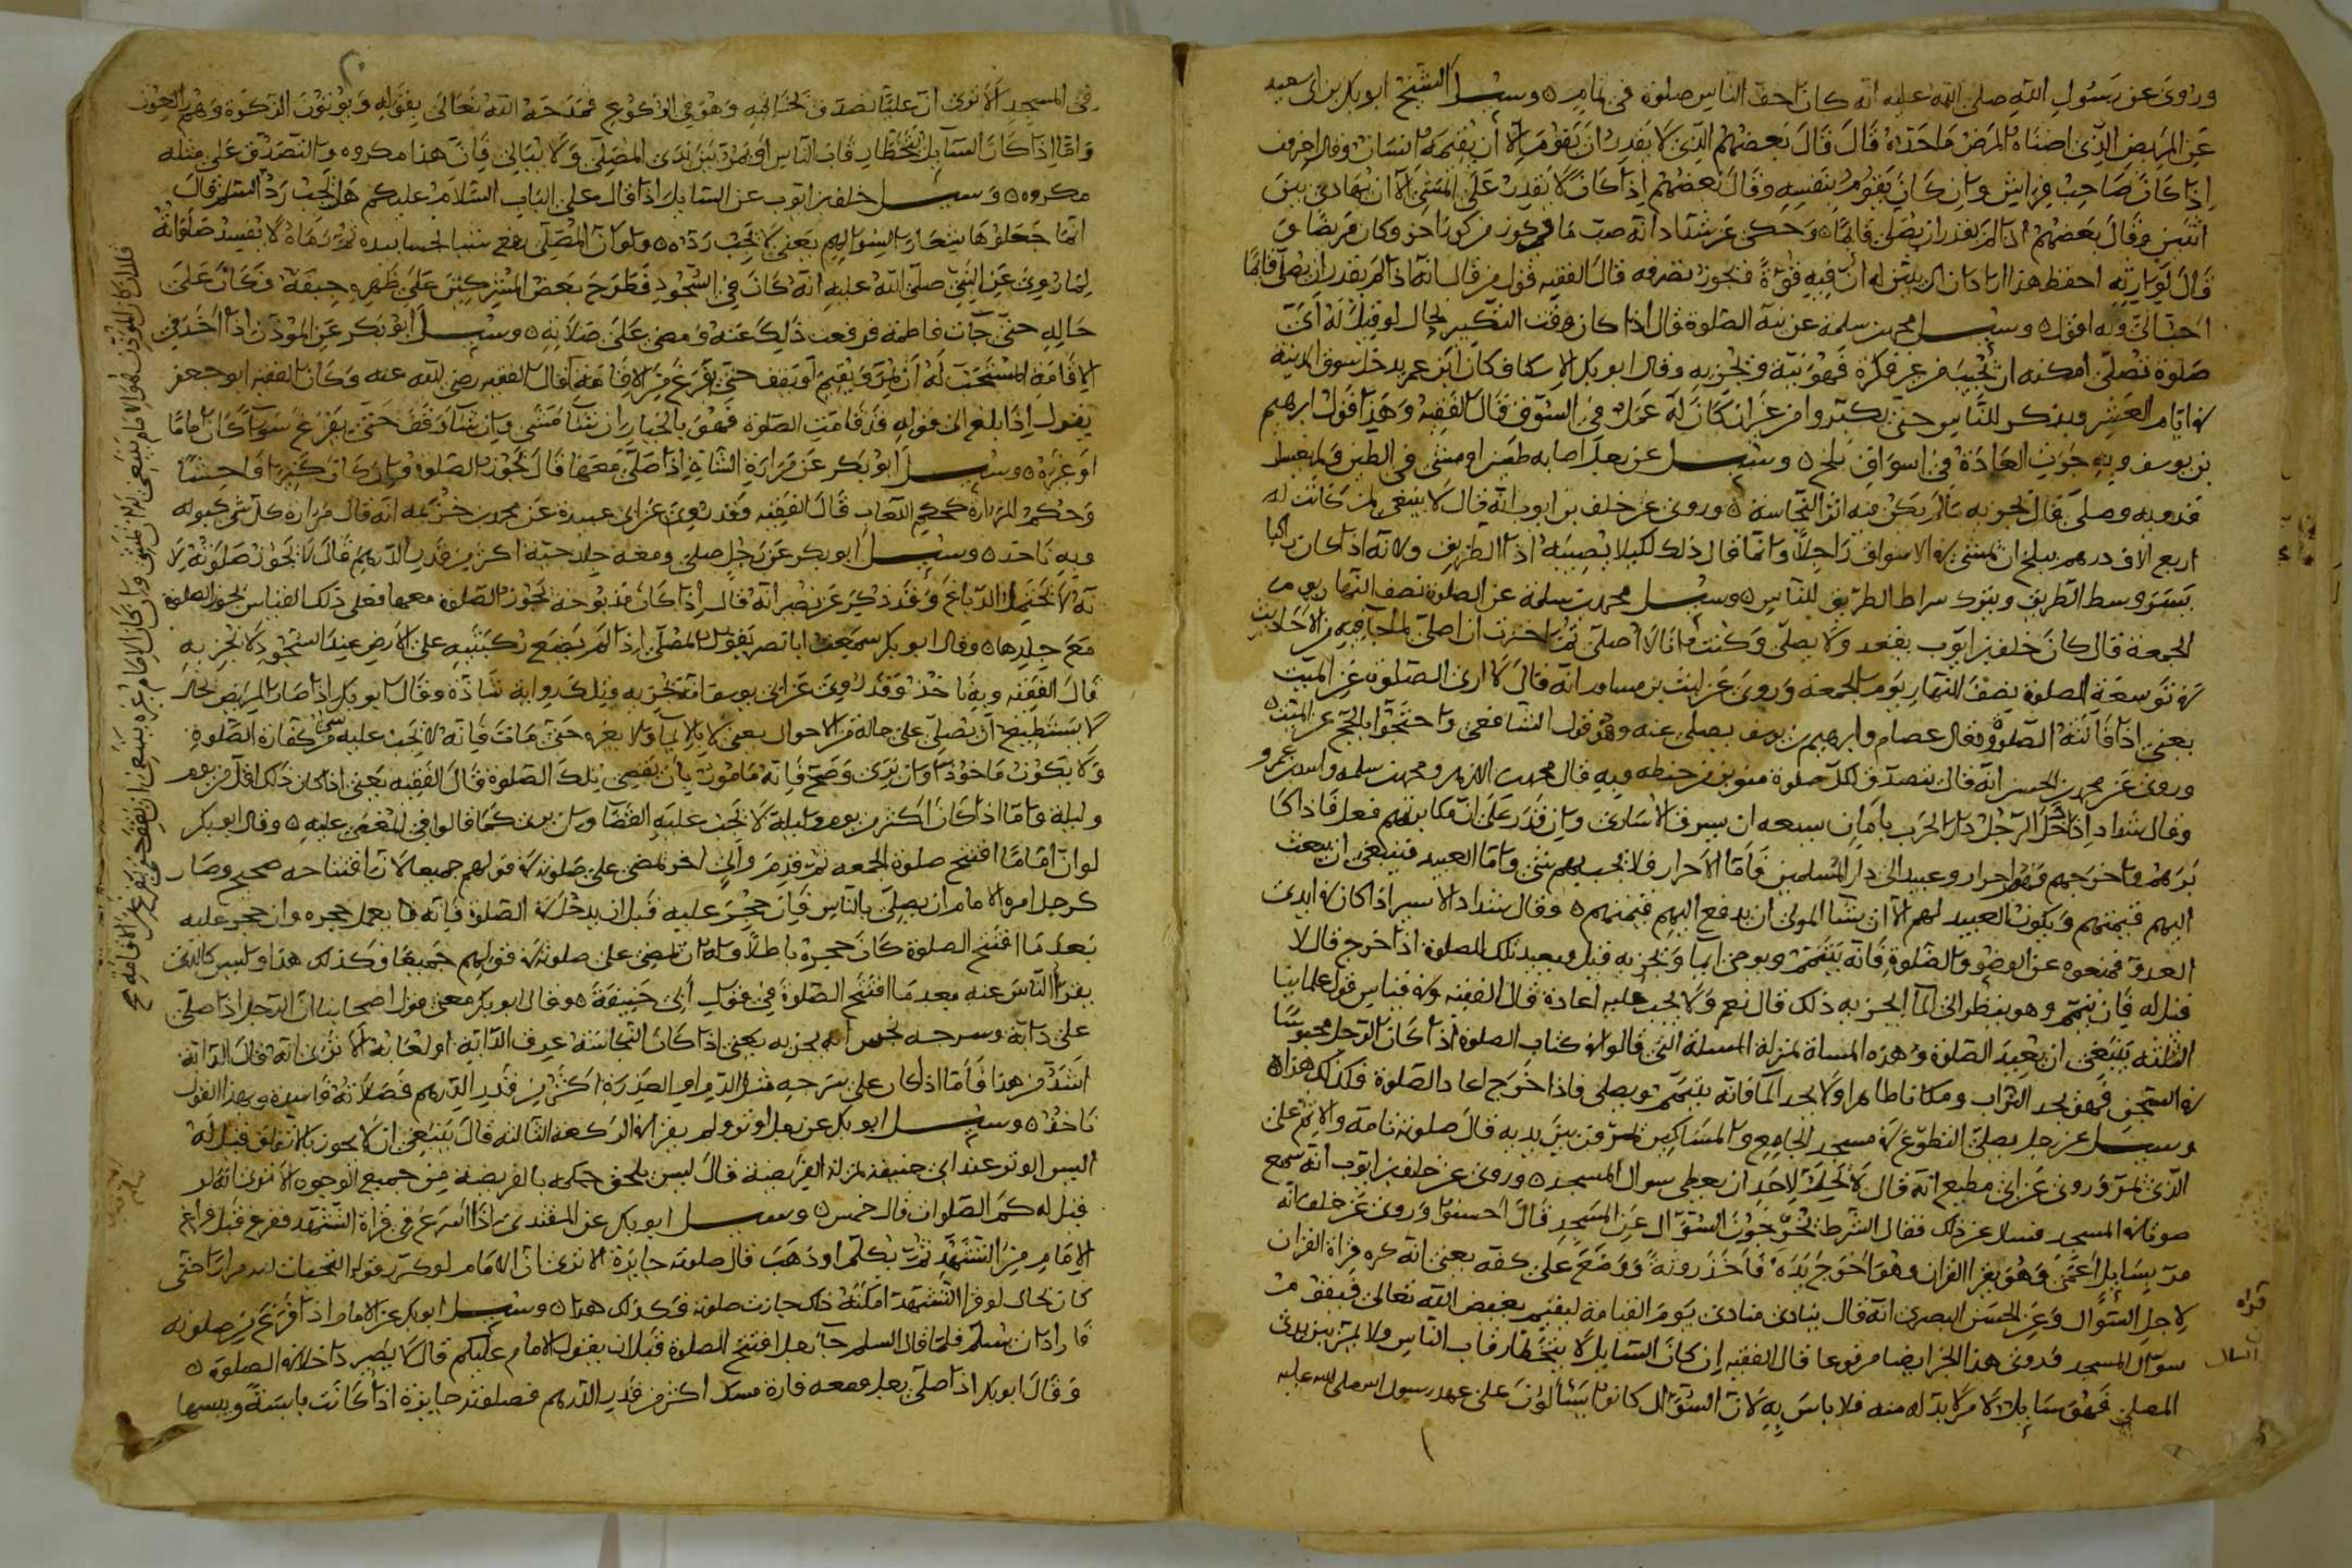 وروى عن رسول الله صلى الله عليه انه كان احق الناس صلوة فى تمام ٥ وسئل الشيخ ابو بكر بن ابى سعيد
عن المريض الذى اضناه المرض ماحده قال قال بعضهم الذى لا يقدر ان يقوم الا ان يقيمه انسان وقال اخرون
اذا كان صاحب فراش وان كان يقوم بنفسه وقال بعضهم اذا كان لا يقدر على المشى الا ان يهادى بين
اثنين وقال بعضهم اذا لم يقدر ان يصلى قائما ٥ وحكى عن شداد انه
قال لوارثه احفظ هذا قال الفقيه قول من قال انه اذا لم يقدر ان يصلى قائما
احب الى وبه اقول ٥ وسئل محمد بن سلمة عن نية الصلوة قال اذا كان وقت التكبير بحال لو قيل له اى
صلوة تصلى امكنه ان يجيب من غير فكرة فهو نية وتجزيه وقال ابو بكر الاسكاف كان ابن عمر يدخل سوق المدينة
فى ايام العشر ويذكر للناس حتى يكبروا من غير ان كان له عمل فى السوق قال الفقيه وهذا قول ابرهيم
بن يوسف وبه جرت العادة فى اسواق بلخ ٥ وسئل عن رجل اصابه طين او مشى فى الطين ولم يغسل
قدميه وصلى قال تجزيه مالم يكن فيه اثر النجاسة ٥ وروى عن خلف بن ايوب انه قال لا ينبغى لمن كانت له
اربع الاف درهم ببلخ ان يمشى فى الاسواق راجلا وانما قال ذلك لكيلا يصيبه اذا الطريق ولانه اذا كان راكبا
يسير وسط الطريق ويترك الطريق للناس ٥ وسئل محمد بن سلمة عن الصلوة نصف النهار يوم
الجمعة قال كان خلف بن ايوب يقعد ولا يصلى وكنت انا لا اصلى ثم اخترت ان اصلى لما جاء فيه من الاحاديث
فى توسعة الصلوة نصف النهار يوم الجمعة وروى عن ليث بن مساور انه قال لا ارى الصلوة عن الميت
يعنى اذا فاتته الصلوة وقال عصام وابرهيم بن يوسف يصلى عنه وهو قول الشافعى واحتجوا بالحج عن الميت ٥
وروى عن محمد بن الحسن انه قال يتصدق لكل صلوة منوين من حنطة وبه قال محمد بن الازهر ومحمد بن سلمة واسد بن عمرو
وقال شداد اذا دخل الرجل دار الحرب بامان يسعه ان يسرق الاسارى وان قدر على ان يكابرهم فعل فاذا كا
برهم واخرجهم فهم احرار وعبيد الى دار المسلمين فاما الاحرار فلا يجب بهم شئ واما العبيد فينبغى ان يبعث
اليهم قيمتهم ويكون العبيد لهم الا ان يشا المولى ان يدفع اليهم قيمتهم ٥ وقال شداد الاسير اذا كان فى ايدى
العدو فمنعوه عن الوضوء والصلوة فانه يتيمم ويومى ايما وتجزيه قيل ويعيد تلك الصلوة اذا خرج قال لا
قيل له فان تيمم وهو ينظر الى الما ايجزيه ذلك قال نعم ولا يجب عليه اعادة قال الفقيه وفى قياس قول علمائنا
الثلثة ينبغى ان يعيد الصلوة وهذه المسالة بمنزلة المسئلة التى قالوا فى كتاب الصلوة اذا كان الرجل محبوسا
فى السجن فهو يجد التراب ومكانا طاهرا ولا يجد الما فانه يتيمم ويصلى فاذا خرج اعاد الصلوة فكذلك هذا ٥
وسئل عن رجل يصلى التطوع فى مسجد الجامع والمساكين يمرون بين يديه قال صلوته تامة والاثم على
الذى يمر وروى عن ابى مطيع انه قال لا يحل لاحد ان يعطى سوال المسجد ٥ وروى عن خلف بن ايوب انه سمع
صوتا فى المسجد فسال عن ذلك فقال الشرط نحو السؤال عن المسجد قال احسنوا وروى عن خلف انه
مر بسائل اعمى وهو يقرا القران وهو اخرج يده فاخذ ووضع على كفه يعنى انه كره قراة القران
لاجل السوال وعن الحسن البصرى انه قال ينادى منادى يوم القيامة ليقم بغيض الله تعالى فيقوم
سوال المسجد وروى هذا الخبر ايضا مرفوعا قال الفقيه ان كان السايل لا يتخطا رقاب الناس ولا يمر بين يدى
المصلى فهو سايل لامر لا بد له منه فلا باس به لان السؤال كانوا يسالون على عهد رسول الله صلى الله عليه
قراة
السال
فى المسجد الا ترى ان عليا تصدق بخاتمه وهو فى الركوع فمدحه الله تعالى بقوله ويؤتون الزكوة وهم راكعون
واما اذا كان السايل يتخطا رقاب الناس او يمر بين يدى المصلى ولا يبالى فان هذا مكروه والتصدق على مثله
مكروه ٥ وسئل خلف بن ايوب عن السايل اذا قال على الباب السلام عليكم هل يجب رد السلم قال
انما جعلوها شعارا لسؤالهم يعنى لا يجب رده ٥ ولو ان المصلى رفع شيئا بيده ثم رماه لا تفسد صلوته
لما روى عن النبى صلى الله عليه انه كان فى السجود فطرح بعض المشركين على ظهره جيفة وكان على
حاله حتى جات فاطمة فرفعت ذلك عنه ومضى على صلاته ٥ وسئل ابو بكر عن المؤذن اذا اخذ فى
الاقامة المستحب له ان يقيم او يقف حتى يفرغ من الاقامة قال الفقيه رضى الله عنه وكان الفقيه ابو جعفر
يقول اذا بلغ الى قوله قد قامت الصلوة فهو بالخيار ان شا مشى وان شا وقف حتى يفرغ سوا كان اماما
او غيره ٥ وسئل ابو بكر عن مرارة الشاة اذا صلى معها قال تجوز الصلوة وان كان كثيرا فاحشا
وحكم المرارة كحكم اللعاب قال الفقيه وقد روى عن ابى عبيدة عن محمد بن خزيمة انه قال مرارة كل شى كبوله
وبه ناخذ ٥ وسئل ابو بكر عن رجل صلى ومعه جلد حية اكثر من قدر الدرهم قال لا تجوز صلوته لا
نه لا يحتمل الدباغ وقد ذكر عن نصير انه قال اذا كان مذبوحة تجوز الصلوة معها فعلى ذلك القياس تجوز الصلوة
مع جلدها ٥ وقال ابو بكر سمعت ابا نصر يقول المصلى اذا لم يضع ركبتيه على الارض عند السجود لا يجزيه
قال الفقيه وبه ناخذ وقد روى عن ابى يوسف انه تجزيه وتلك رواية شاذة وقال ابو بكر اذا صار المريض بحال
لا يستطيع ان يصلى على حالة من الاحوال يعنى لا بالايما ولا بغيره حتى مات فانه لا يجب عليه شى من كفارة الصلوة
ولا يكون ماخوذا وان برى وصح فانه مامور بان يقضى تلك الصلوة قال الفقيه يعنى اذا كان ذلك اقل من يوم
وليلة واما اذا كان اكثر من يوم وليلة لا يجب عليه القضا وان برى كما قالوا فى المغمى عليه ٥ وقال ابو بكر
لو ان اماما افتتح صلوة الجمعة ثم قدم والى اخر يمضى على صلوته فى قولهم جميعا لان افتتاحه صحيح وصار
كرجل امره الامام ان يصلى بالناس فان حجر عليه قبل ان يدخل فى الصلوة فانه يعمل حجره وان حجر عليه
بعدما افتتح الصلوة كان حجره باطلا وله ان يمضى على صلوته فى قولهم جميعا وكذلك هذا وليس كالذى
بعدما افتتح الصلوة فى قول ابى حنيفة ٥ وقال ابو بكر معنى قول اصحابنا ان الرجل اذا صلى
على دابة وسرجه نجس انه يجزيه يعنى اذا كان النجاسة عرق الدابة او لعابه الا ترى انه قال الدابة
اشد من هذا فاما اذا كان على سرجه مثل الدم او العذرة اكثر من قدر الدرهم فصلاته فاسدة وبهذا القول
ناخذ ٥ وسئل ابو بكر عن رجل اوتر ولم يقرا فى الركعة الثالثة قال ينبغى ان لا يجوز بالاتفاق قيل له
اليس الوتر عند ابى حنيفة بمنزلة الفريضة قال ليس يلحق حكمه بالفريضة من جميع الوجوه الا ترى انه لو
قيل له كم الصلوات قال خمس ٥ وسئل ابو بكر عن المقتدى اذا اسرع فى قراة التشهد ففرغ قبل فراغ
الامام من التشهد ثم تكلم او ذهب قال صلوته جايزة الا ترى ان الامام لو كرر قوله التحيات لله مرارا حتى
كان بحال لو قرا التشهد امكنه ذلك جازت صلوته فكذلك هذا ٥ وسئل ابو بكر عن الامام اذا فرغ من صلوته
فاراد ان يسلم فلما قال السلم جا رجل افتتح الصلوة قبل ان يقول الامام عليكم قال لا يصير داخلا فى الصلوة ٥
وقال ابو بكر اذا صلى رجل ومعه فارة مسك اكثر من قدر الدرهم فصلوته جايزة اذا كانت يابسة ويبسها